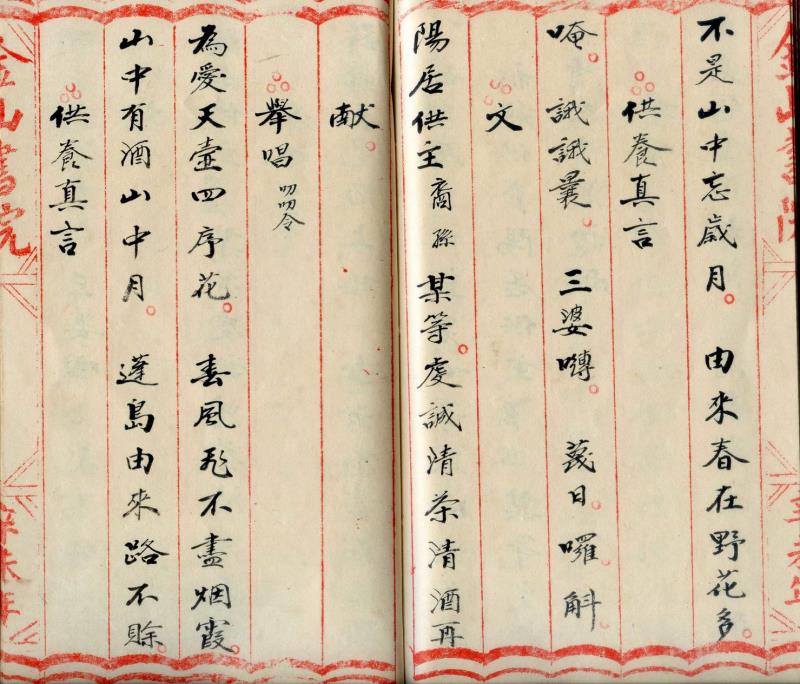 不是山中忘歲月。由來春在野花多。
供養真言
唵。誐誐曩。三婆嚩。韈日囉斛
文
陽居供主裔孫某等。虔誠清茶清酒再
献。
舉唱叨叨令
為愛天壺四序花。春風飛不盡烟霞。
山中有酒山中月。蓬島由來路不賒。
供養真言
金山書院
辛未年